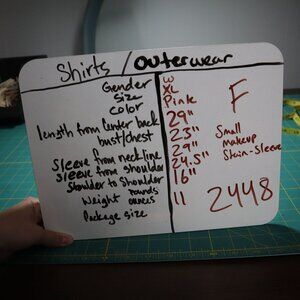 Shirts / Outerwear
Gender W
Size XL
Color Pink
length from Center back 29"
bust/chest 23"
Sleeve from neckline 29"
Sleeve from shoulder 24.5"
Shoulder to Shoulder 16"
Weight pounds
ounces 11
Package size
F
Small
makeup
Stain-sleeve
2448